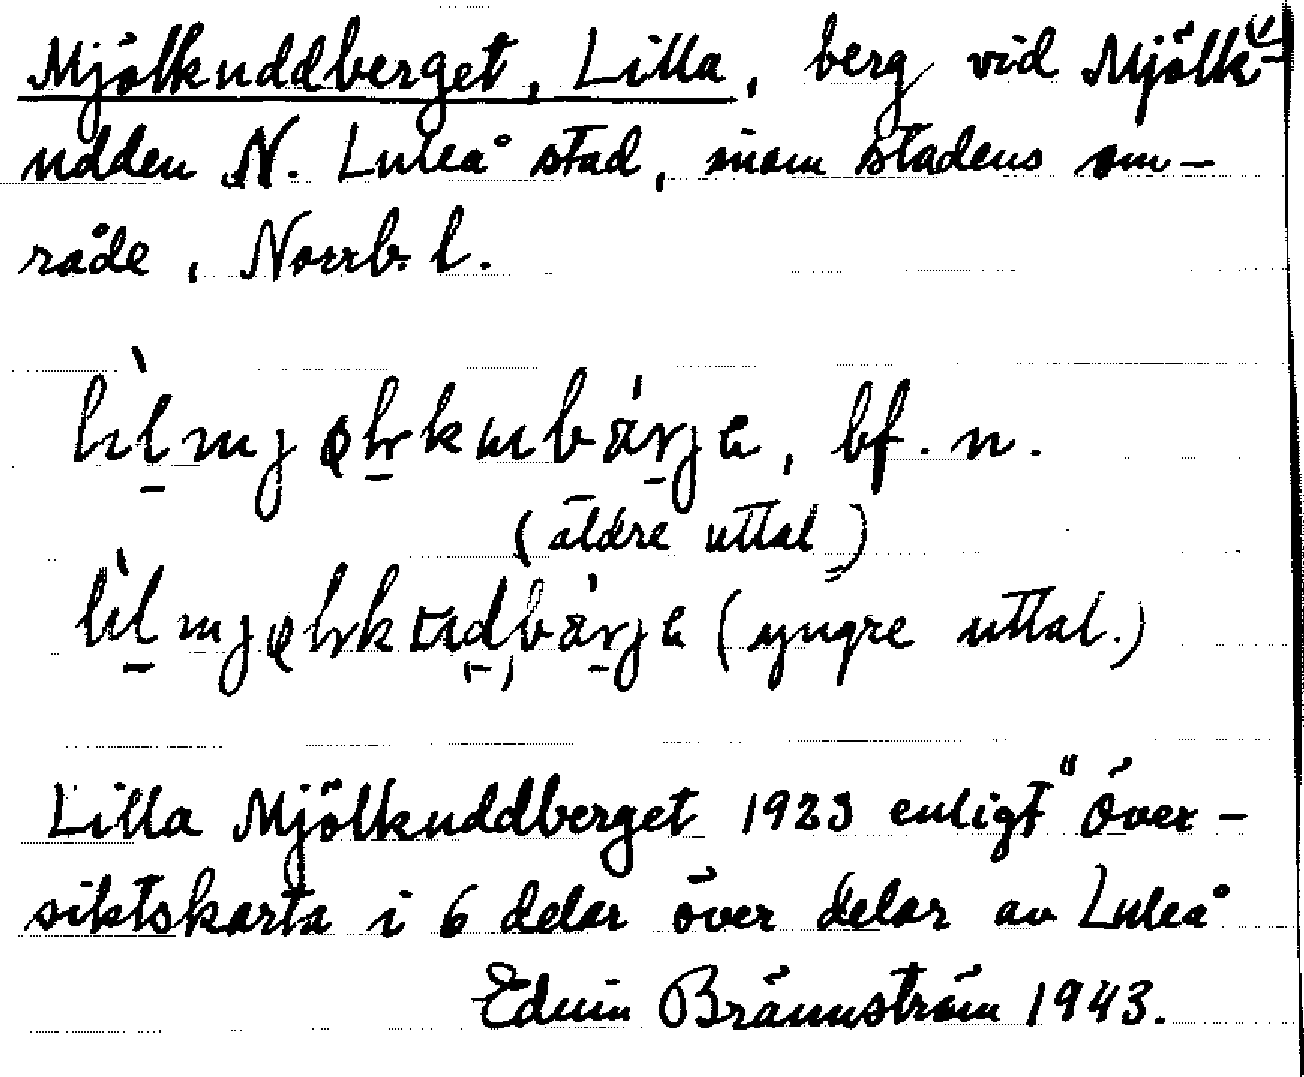 Mjölkuddberget, Lilla, berg vid Mjölk-
udden N. Luleå stad, inom stadens om-
råde, Norrb. l.
bf. n.
(äldre uttal)
(yngre uttal.)
Lilla Mjölkuddberget 1923 enligt "Över-
siktskarta i 6 delar över delar av Luleå
Edvin Brännström 1943.